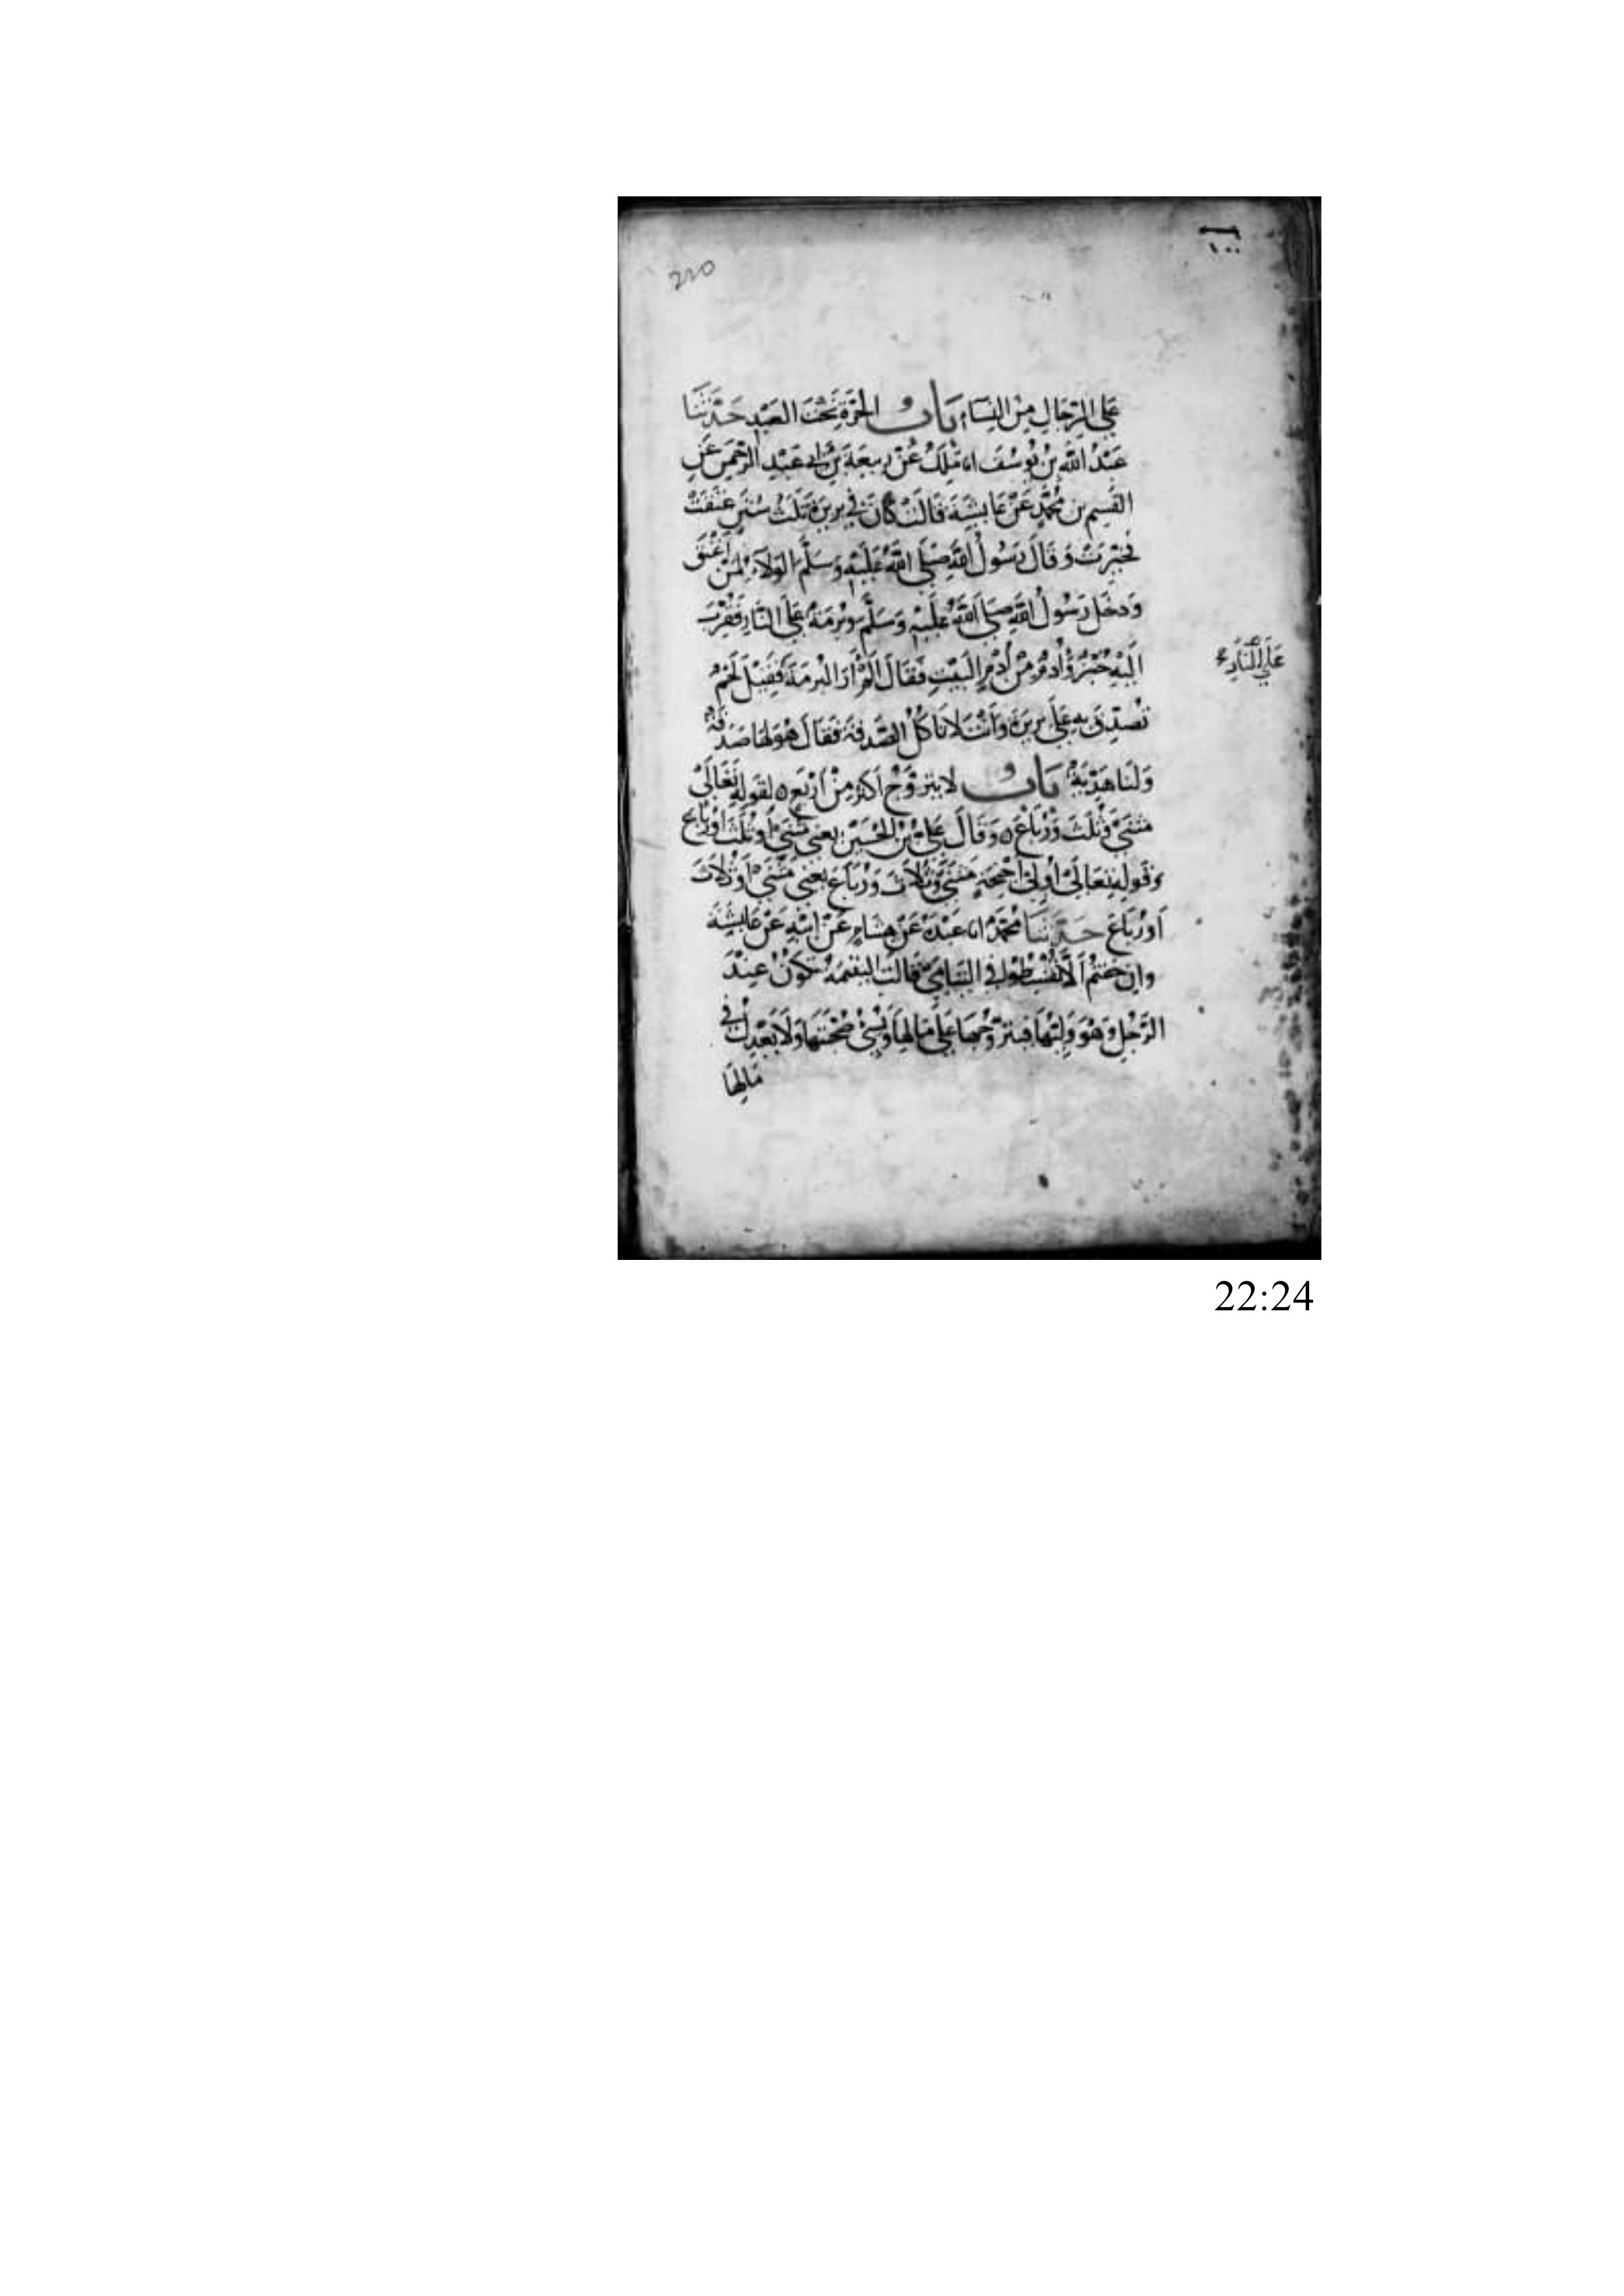 ١٠٠
220
عَلَى الرِّجَالِ مِنَ النِّسَاءِ بَابُ الحُرَّةِ تَحْتَ العَبْدِ حَدَّثَنَا
عَبْدُ اللَّهِ بْنُ يُوسُفَ انا مٰلِكٌ عَنْ رَبِيعَةَ بْنِ أَبِي عَبْدِ الرَّحْمٰنِ عَنِ
القٰسِمِ بن مُحَمَّدٍ عَنْ عَايِشَةَ قَالَتْ كَانَ فِي بَرِيرَةَ ثَلٰثُ سُنَنٍ عَتَقَتْ
فَخُيِّرَتْ وَقَالَ رَسُولُ اللَّهِ صَلَّى اللَّهُ عَلَيْهِ وَسَلَّمَ الوَلَاءُ لِمَنْ أَعْتَقَ
وَدَخَلَ رَسُولُ اللَّهِ صَلَّى اللَّهُ عَلَيْهِ وَسَلَّمَ وَبُرْمَةٌ عَلَى النَّارِ فَقُرِّبَ
إِلَيْهِ خُبْزٌ وَأُدْمٌ مِنْ أُدْمِ البَيْتِ فَقَالَ أَلَمْ أَرَ البُرْمَةَ فَقِيلَ لَحْمٌ
عَلَى النَّارِ
تُصُدِّقَ بِهِ عَلَى بَرِيرَةَ وَأَنْتَ لَا تَاكُلُ الصَّدَقَةَ فَقَالَ هُوَ لَهَا صَدَقَةٌ
وَلَنَا هَدِيَّةٌ بَابُ لا يتزَوَّجُ أَكْثَرَ مِنْ أَرْبَعٍ ه لِقَوْلِهِ تَعَالَى
مَثْنَى وَثُلٰثَ وَرُبَاعَ ه وَقَالَ عَلِيُّ بْنُ الحُسَيْنِ يعني مَثْنَى أَوْ ثُلٰثَ أَوْ رُبَاعَ
وَقَوْلِهِ تَعَالَى أُولِي أَجْنِحَةٍ مَثْنَى وَثُلَاثَ وَرُبَاعَ يعني مَثْنَى أَوْ ثُلَاثَ
أَوْ رُبَاعَ حَدَّثَنَا مُحَمَّدٌ انا عَبْدَةُ عَنْ هِشَامٍ عَنْ أَبِيهِ عَنْ عَايِشَةَ
وَإِنْ خِفْتُمْ أَلَّا تُقْسِطُوا فِي اليَتَامَى قَالَتْ اليَتِيمَةُ تَكُونُ عِنْدَ
الرَّجُلِ وَهُوَ وَلِيُّهَا فيتزَوَّجُهَا عَلَى مَالِهَا وَيُسِيُ صُحْبَتَهَا وَلَا يَعْدِلُ فِي
مَالِهَا
22:24